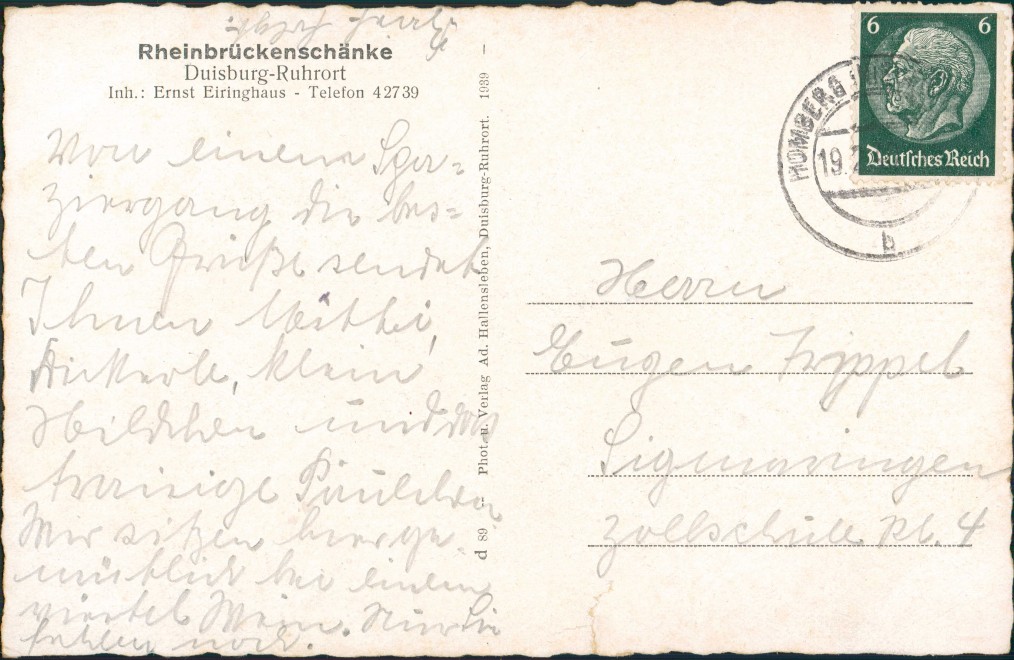 Rheinbrückenschänke
Duisburg-Ruhrort
Inh.: Ernst Eiringhaus - Telefon 42739
Von einem Spa-
ziergang die bes-
ten Grüße sendet
Ihnen
klein
Hildchen und das
traurige Paulchen
Wir sitzen hier ge-
mütlich bei einem
viertel Wein. Nur Sie
fehlen noch.
d 89 - Phot. u. Verlag Ad. Hallensleben, Duisburg-Ruhrort. 1939 -
6 6
Deutsches Reich
HOMBERG
19.
b
Herrn
Eugen Zippel
Sigmaringen
Zollschule Kl. 4